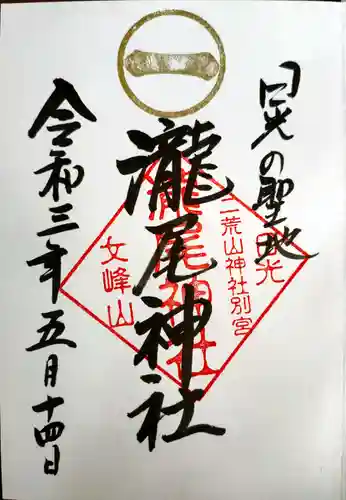 日光の聖地
瀧尾神社
令和三年五月十四日
日光
二荒山神社別宮
瀧尾神社
女峰山